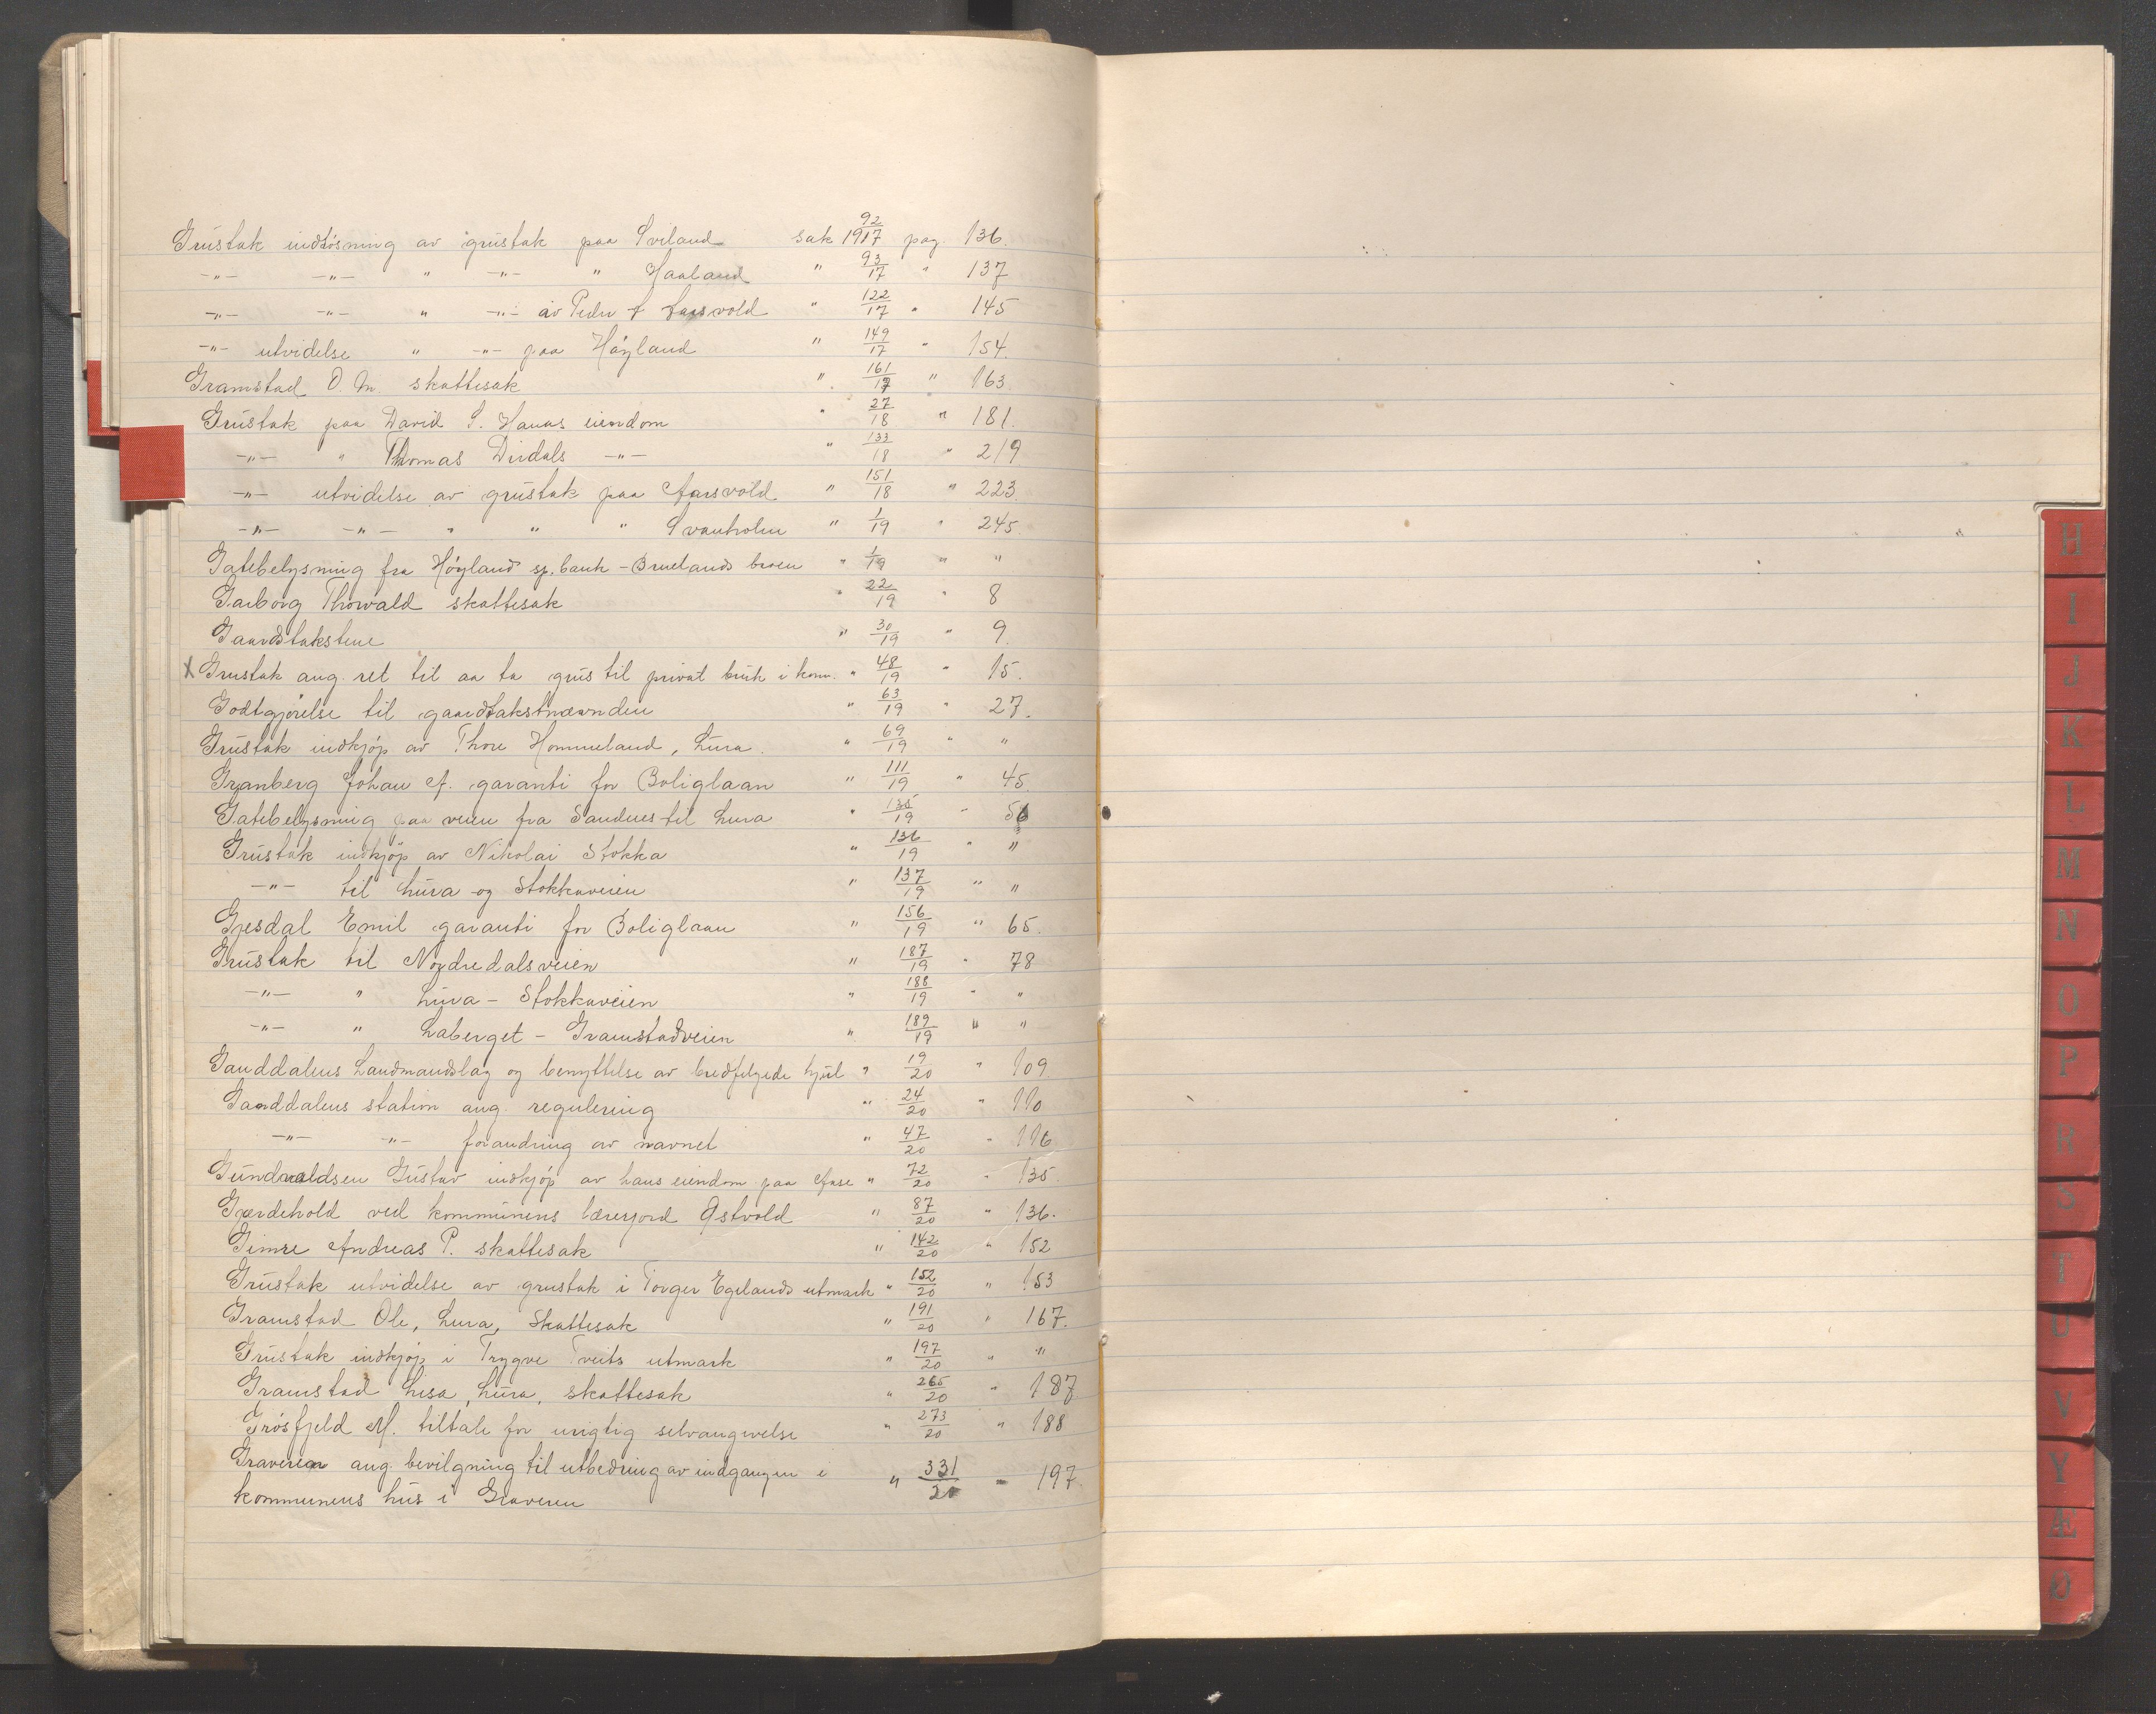 Grustak indløsning av grustak paa Sviland sak 92/1917 pag. 136.
-"- -"- " -"- " Haaland " 93/17 " 137
-"- -"- " -"- av Peder Aarsvold " 122/17 " 145
-"- utvidelse " -"- paa Høyland " 149/17 " 154.
Gramstad O. M. skattesak " 161/17 " 163
Grustak paa David S. Hanas eiendom " 27/18 " 181.
-"- " Thomas Dirdals -"- " 133/18 " 219
-"- utvidelse av grustak paa Aarsvold " 151/18 " 223.
-"- -"- " " " Svanholm " 1/19 " 245.
Gatebelysning fra Høyland sp.bank - Bruelands broen " 1/19 " "
Garborg Thorvald skattesak " 22/19 " 8
Gaardstakstene " 30/19 " 9.
x Grustak ang. ret til aa ta grus til privat bruk i kom. " 48/19 " 15.
Godtgjørelse til gaardstakstnævnden " 63/19 " 27.
Grustak indkjøp av Thore Hommeland, Lura. " 69/19 " "
Granberg Johan A. garanti for Boliglaan " 111/19 " 45
Gatebelysning paa veien fra Sandnes til Lura " 135/19 " 56
Grustak indkjøp av Nikolai Stokka " 136/19 " "
-"- til Lura og Stokkaveien " 137/19 " "
Gjesdal Emil garanti for Boliglaan " 156/19 " 65.
Grustak til Nordredalsveien " 187/19 " 78
-"- " Lura - Stokkaveien " 188/19 " "
-"- " Laberget - Gramstadveien " 189/19 " "
Ganddalens Landmandslag og benyttelse av bredfelgede hjul " 19/20 " 109
Ganddalens station ang. regulering " 24/20 " 110
-"- -"- forandring av navnet " 47/20 " 116
Gundvaldsen Gustav indkjøp av hans eiendom paa Ase " 72/20 " 135.
Gjærdehold ved kommunens lærerjord Østvold " 87/20 " 136.
Gimre Andreas P. skattesak " 142/20 " 152
Grustak utvidelse av grustak i Torger Egelands utmark " 152/20 " 153
Gramstad Ole, Lura, Skattesak " 191/20 " 167.
Grustak indkjøp i Trygve Tveits utmark " 197/20 " "
Gramstad Lisa, Lura, skattesak " 265/20 " 187
Grøsfjeld M. tiltale for urigtig selvangivelse " 273/20 " 188
Graveren ang. bevilgning til utbedring av indgangen i " 331/20 " 197.
kommunens hus i Graveren
H
I
J
K
L
M
N
O
P
R
S
T
U
V
Y
Æ
Ø